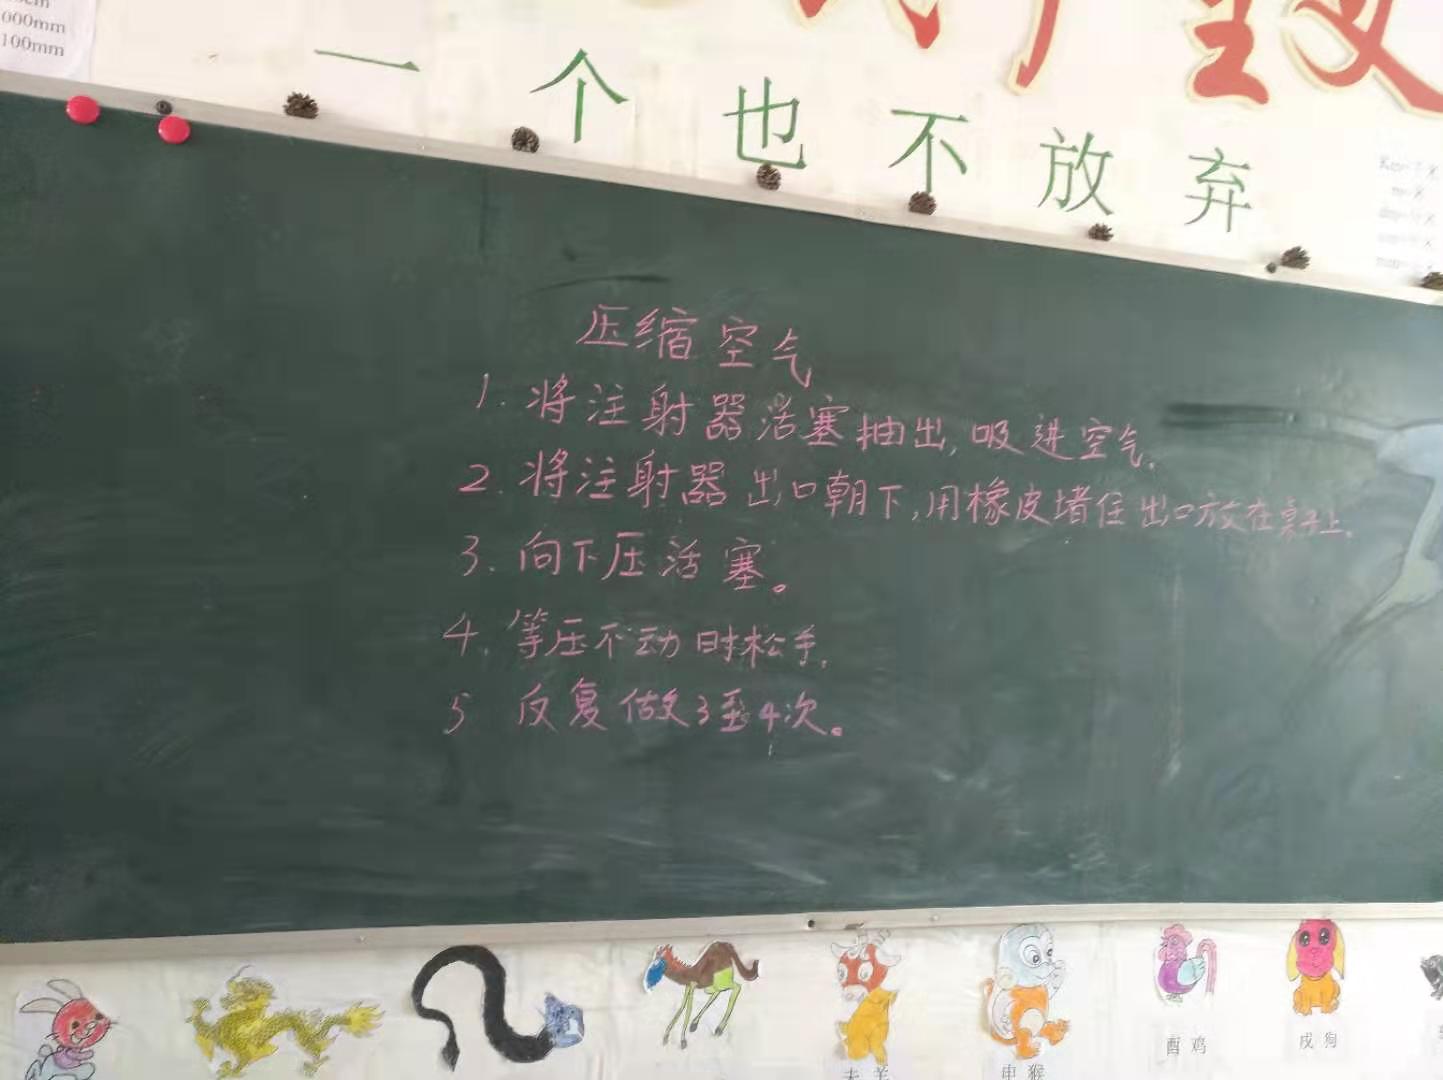 000mm
100mm
一个也不放弃
压缩空气
1. 将注射器活塞抽出,吸进空气.
2. 将注射器出口朝下,用橡皮堵住出口放在桌子上.
3. 向下压活塞。
4. 等压不动时松手.
5 反复做3至4次。
未羊
申猴
酉鸡
戌狗